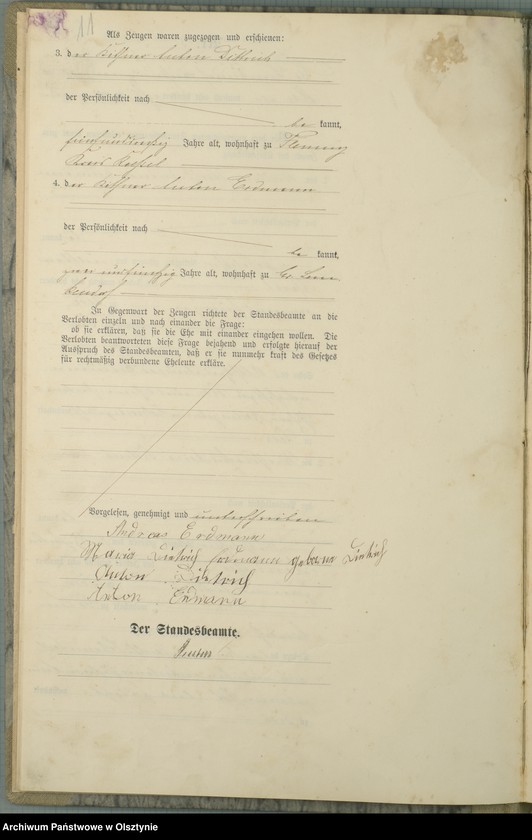 11
Als Zeugen waren zugezogen und erschienen:
3. der Besitzer Anton Dittrich
der Persönlichkeit nach
be kannt,
fünfunddreißig Jahre alt, wohnhaft zu Fleming
Kreis Rössel
4. der Besitzer Anton Erdmann
der Persönlichkeit nach
be kannt,
zwei und Jahre alt, wohnhaft zu Gr.
In Gegenwart der Zeugen richtete der Standesbeamte an die
Verlobten einzeln und nach einander die Frage:
ob sie erklären, daß sie die Ehe mit einander eingehen wollen. Die
Verlobten beantworteten diese Frage bejahend und erfolgte hierauf der
Ausspruch des Standesbeamten, daß er sie nunmehr kraft des Gesetzes
für rechtmäßig verbundene Eheleute erkläre.
Vorgelesen, genehmigt und unterschrieben
Andreas Erdmann
Maria Dietrich Erdmann geborne Dietrich
Anton Dietrich
Anton Ermann
Der Standesbeamte.
Archiwum Państwowe w Olsztynie